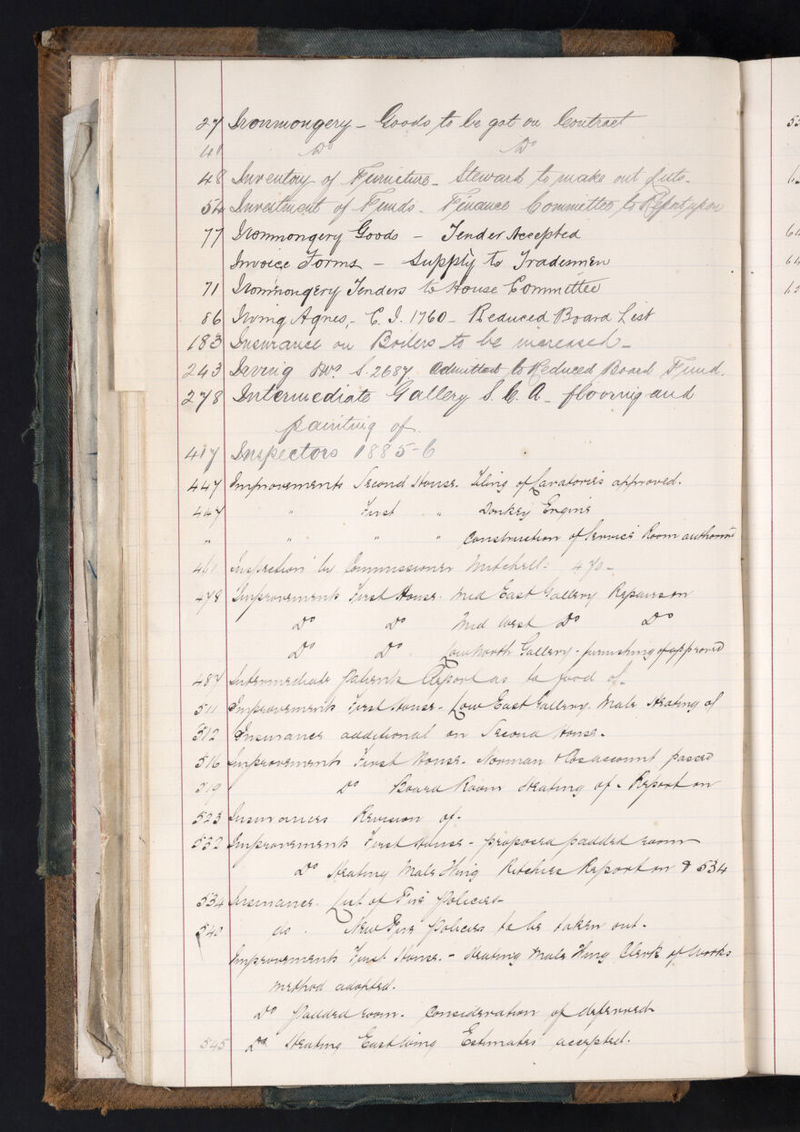 27 Ironmongery - Goods to be got on Contract
41 Do Do
48 Inventory of Furniture - Steward to make out
54 Investment of Funds - Finance Committee to Report upon
77 Ironmongery Goods - Tender Accepted
Invoice Forms - Supply to Tradesmen
71 Ironmongery Tenders to House Committee
86 Irving Agnes, - C.I. 1760 - Reduced Board List
183 Insurance on Boilers to be increased -
243 Irving S. 2687 admitted to Reduced Board Fund.
278 Intermediate Gallery S.C.A - flooring and
painting of
417 Inspectors 1885-6
447 Improvements Second House. Tiling of Lavatories approved.
447 " First " Donkey Engine
" " " " Construction of Service Room
461 Inspection by Commissioner Mitchell. 470 -
478 Improvements First House. Mid East Gallery Repairs on
Do Do Mid West Do Do
Do Do Low North Gallery - furnishing of approved
487 Intermediate Patients Report as to food of -
511 Improvements First House - Low East Gallery Male Heating of
512 Insurance additional on Second House -
516 Improvements First House. Norman & Co's account passed
519 Do Board Room Heating of - Report on
523 Insurances Revision of -
532 Improvements First House - proposed padded room
Do Heating Male Wing Report on & 534
534 Insurance. List of Fire Policies -
540 do. New Fire Policies to be taken out -
Improvements First House. - Heating Male Wing Clerk of Works
method adopted.
Do Padded room. Consideration of deferred
545 Do Heating East Wing Estimates accepted.